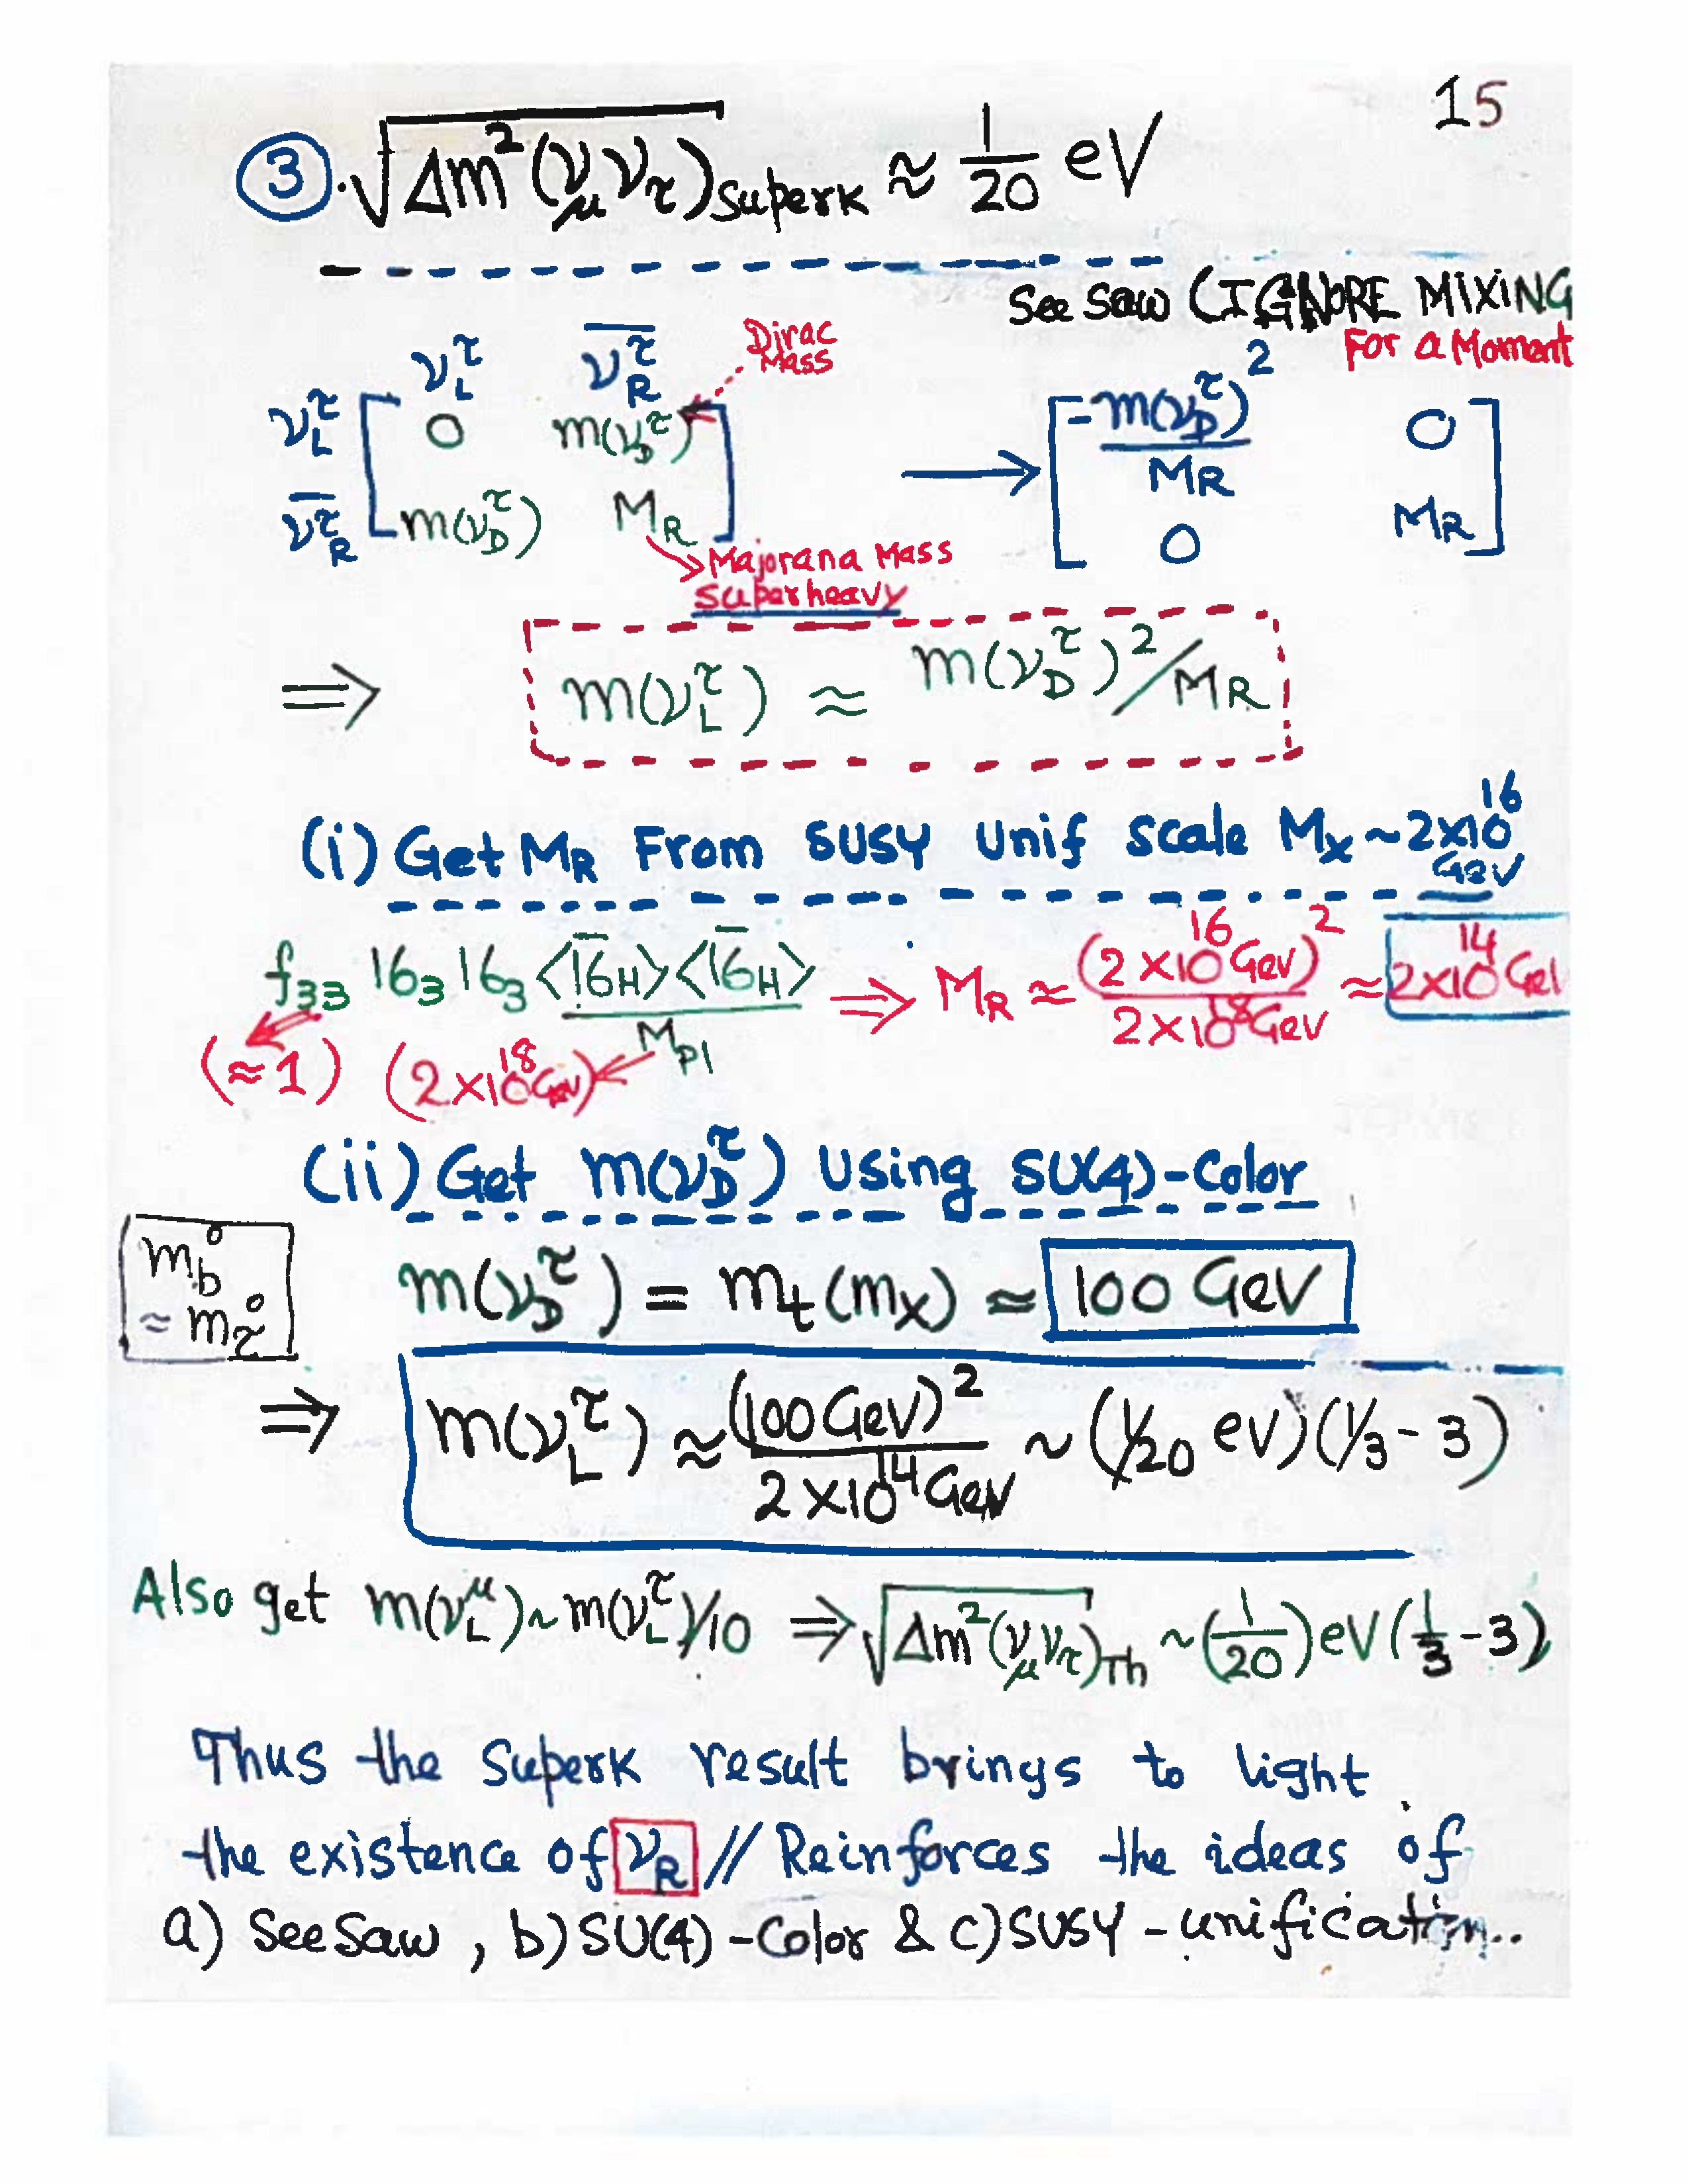 15
③. √Δm²(ν_μ ν_τ)_SuperK ≈ 1/20 eV
See Saw (IGNORE MIXING
For a Moment
Dirac Mass
ν_L^τ  \overline{ν_R^τ}
ν_L^τ [ 0  m(ν_D^τ) ] → [ -m(ν_D^τ)²/M_R  0 ]
\overline{ν^τ}_R [ m(ν_D^τ)  M_R ]  [ 0  M_R ]
Majorana Mass
Superheavy
⇒ m(ν_L^τ) ≈ m(ν_D^τ)²/M_R
(i) Get M_R From SUSY Unif Scale M_X ~ 2×10^16 GeV
f_33 16_3 16_3 <\overline{16}_H><\overline{16}_H> / M_Pl ⇒ M_R ≈ (2×10^16 GeV)² / 2×10^18 GeV ≈ 2×10^14 GeV
(≈1) (2×10^18 GeV)
(ii) Get m(ν_D^τ) Using SU(4)-Color
m_b° ≈ m_τ°
m(ν_D^τ) = m_t(m_X) ≈ 100 GeV
⇒ m(ν_L^τ) ≈ (100 GeV)² / 2×10^14 GeV ~ (1/20 eV)(1/3 - 3)
Also get m(ν_L^μ) ~ m(ν_L^τ)/10 ⇒ √Δm²(ν_μ ν_τ)_Th ~ (1/20) eV (1/3 - 3)
Thus the SuperK result brings to light
the existence of ν_R // Reinforces the ideas of
a) SeeSaw, b) SU(4)-Color & c) SUSY-unification..